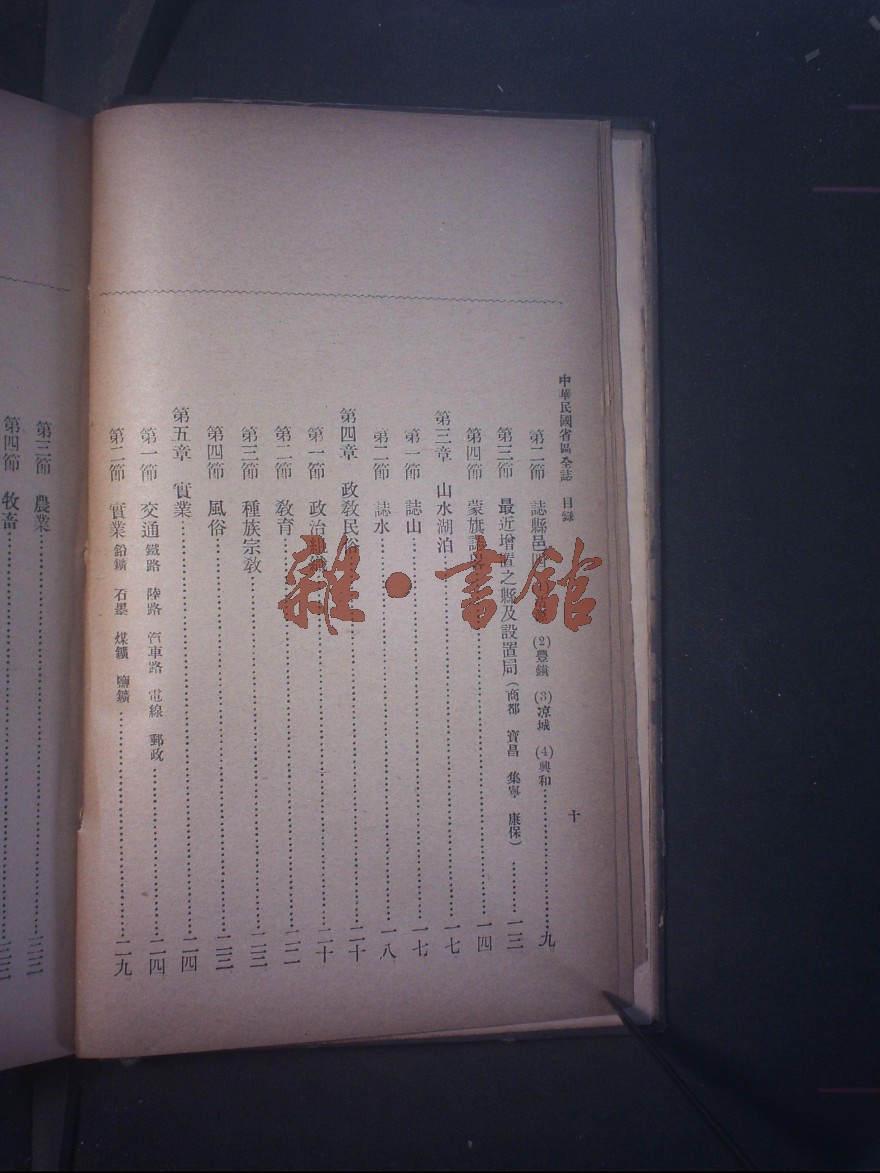 中華民國省區全誌　目錄　十
第二節　誌縣邑 (2)豐鎭　(3)凉城　(4)興和……九
第三節　最近增置之縣及設置局(商都　寶昌　集寧　康保)……一三
第四節　蒙旗……一四
第三章　山水湖泊……一七
第一節　誌山……一七
第二節　誌水……一八
第四章　政敎民俗……二十
第一節　政治組織……二十
第二節　敎育……二二
第三節　種族宗敎……二三
第四節　風俗……二三
第五章　實業……二四
第一節　交通　鐵路　陸路　汽車路　電線　郵政……二四
第二節　實業　鉛鑛　石墨　煤鑛　鹽鑛……二九
第三節　農業……三二
第四節　牧畜……三三
雜·書館